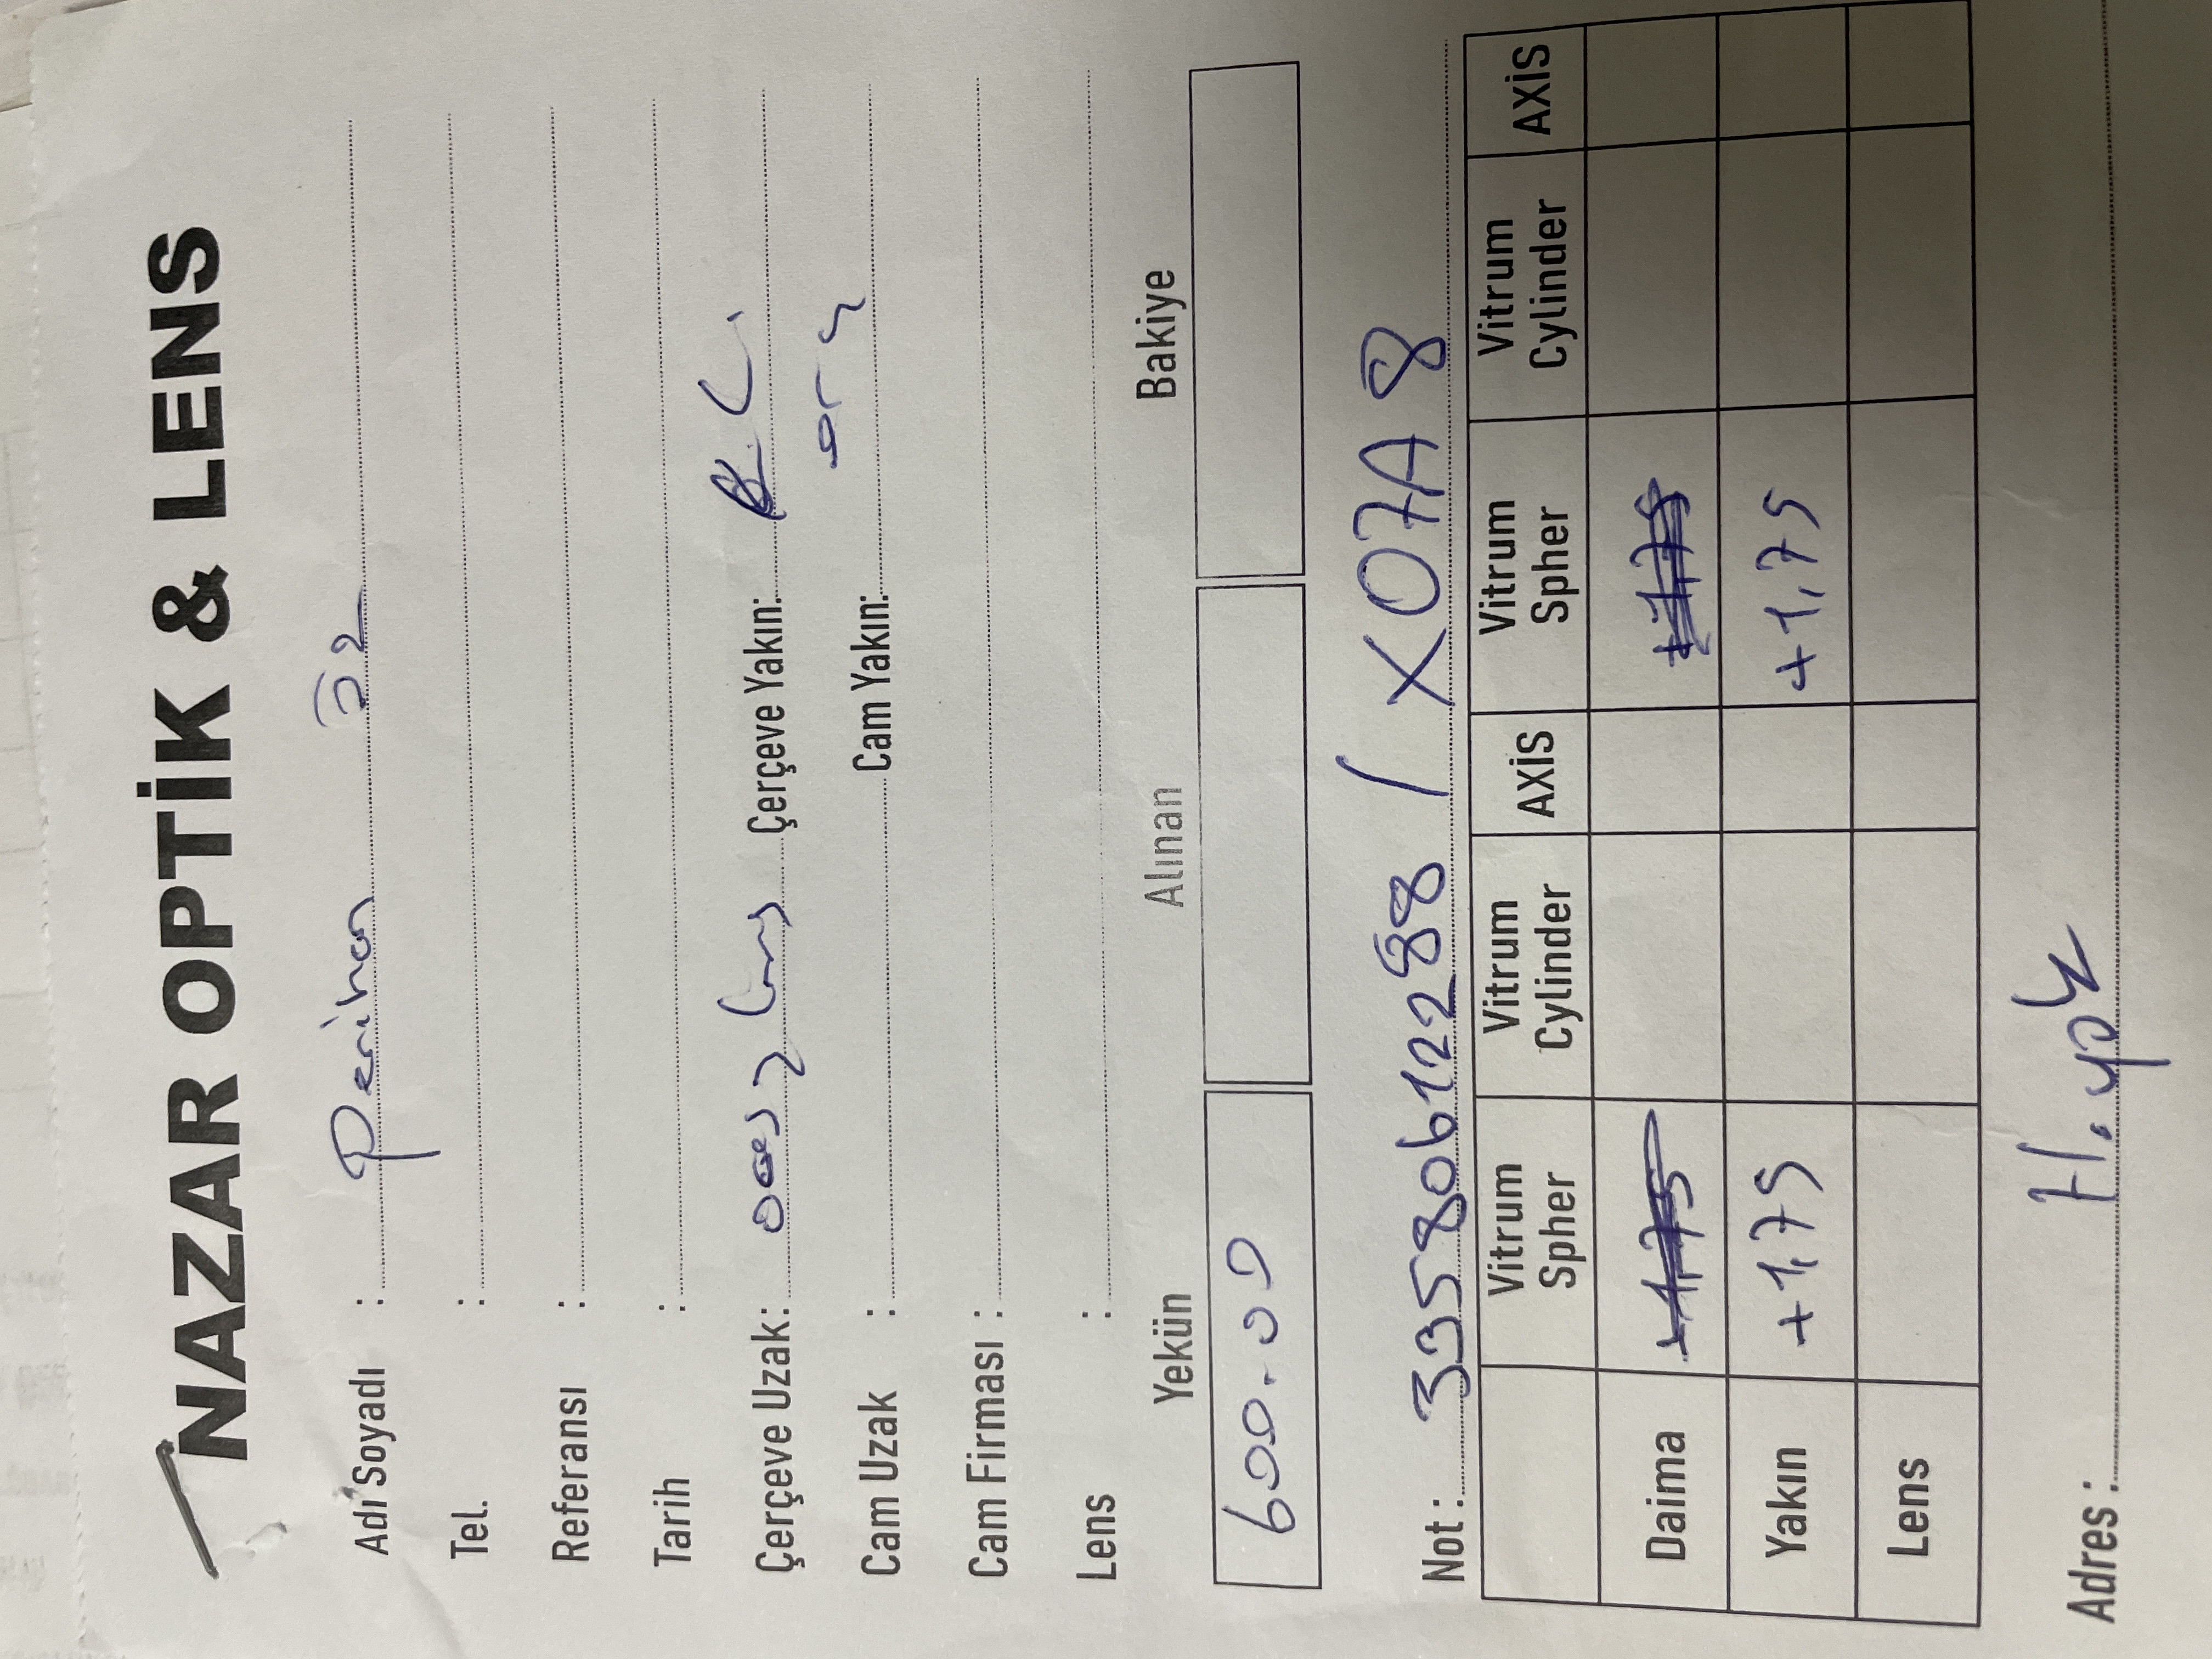 NAZAR OPTİK & LENS
Adı Soyadı : Perihan Öz
Tel. :
Referansı :
Tarih :
Çerçeve Uzak: Çerçeve Yakın:
Cam Uzak : Cam Yakın:
Cam Firması :
Lens :
Yekün Alınan Bakiye
600.00
Not : 33580612288 / X07A8
Vitrum Spher Vitrum Cylinder AXİS Vitrum Spher Vitrum Cylinder AXİS
Daima +1,75 +1,75
Yakın +1,75 +1,75
Lens
Adres : H. yok